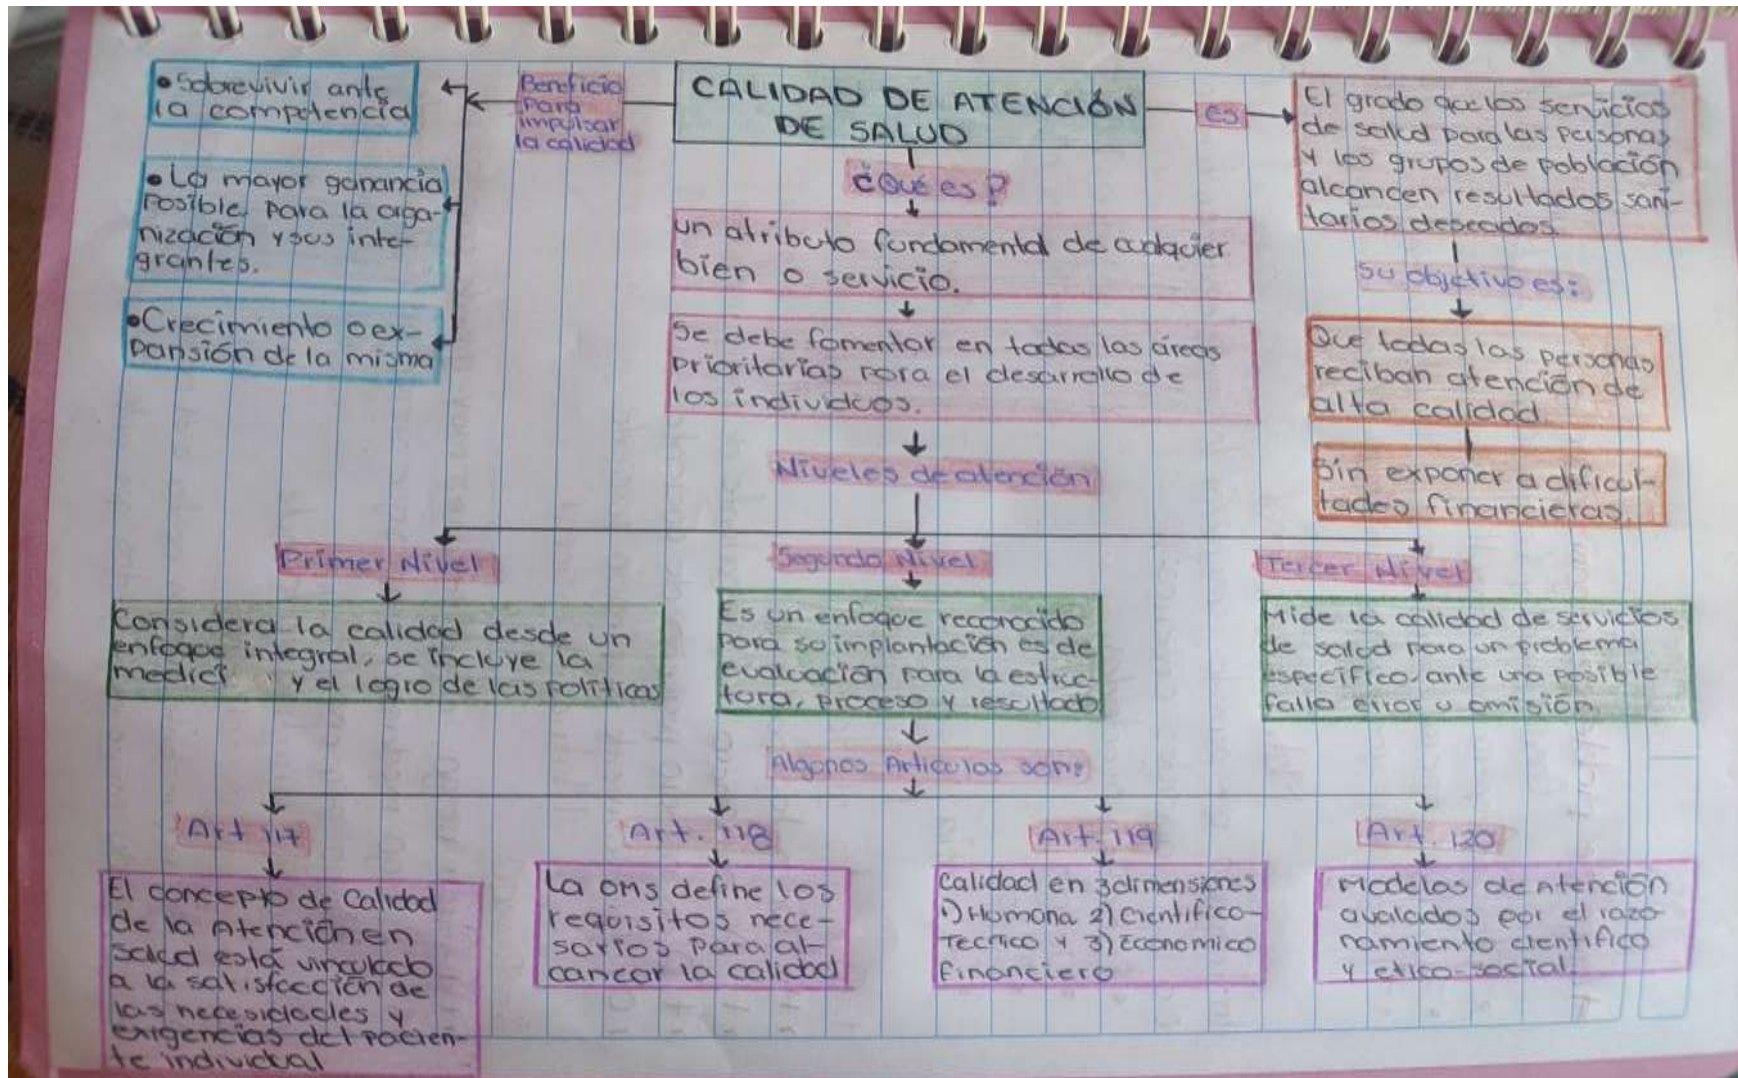 CALIDAD DE ATENCIÓN
DE SALUD
Beneficio
para
impulsar
la calidad
• Sobrevivir ante
la competencia
• La mayor ganancia
posible para la orga-
nización y sus inte-
grantes.
• Crecimiento o ex-
pansión de la misma
es
El grado que los servicios
de salud para las personas
y los grupos de población
alcancen resultados sani-
tarios deseados.
Su objetivo es:
Que todas las personas
reciban atención de
alta calidad.
Sin exponer a dificul-
tades financieras.
¿Qué es?
un atributo fundamental de cualquier
bien o servicio.
Se debe fomentar en todas las áreas
prioritarias para el desarrollo de
los individuos.
Niveles de atención
Primer Nivel
Considera la calidad desde un
enfoque integral, se incluye la
medici y el logro de las políticas
Segundo Nivel
Es un enfoque reconocido
para su implantación es de
evaluación para la estruc-
tura, proceso y resultado
Tercer Nivel
Mide la calidad de servicios
de salud para un problema
específico, ante una posible
falla error u omisión.
Algunos Artículos son:
Art 117
El concepto de Calidad
de la Atención en
salud está vinculado
a la satisfacción de
las necesidades y
exigencias del pacien-
te individual
Art. 118
La OMS define los
requisitos nece-
sarios para al-
canzar la calidad
Art. 119
Calidad en 3 dimensiones
1) Humana 2) Científico-
Tecnico y 3) Economico
Financiero
Art. 120
Modelos de Atención
avalados por el razo-
namiento científico
y etico-social.